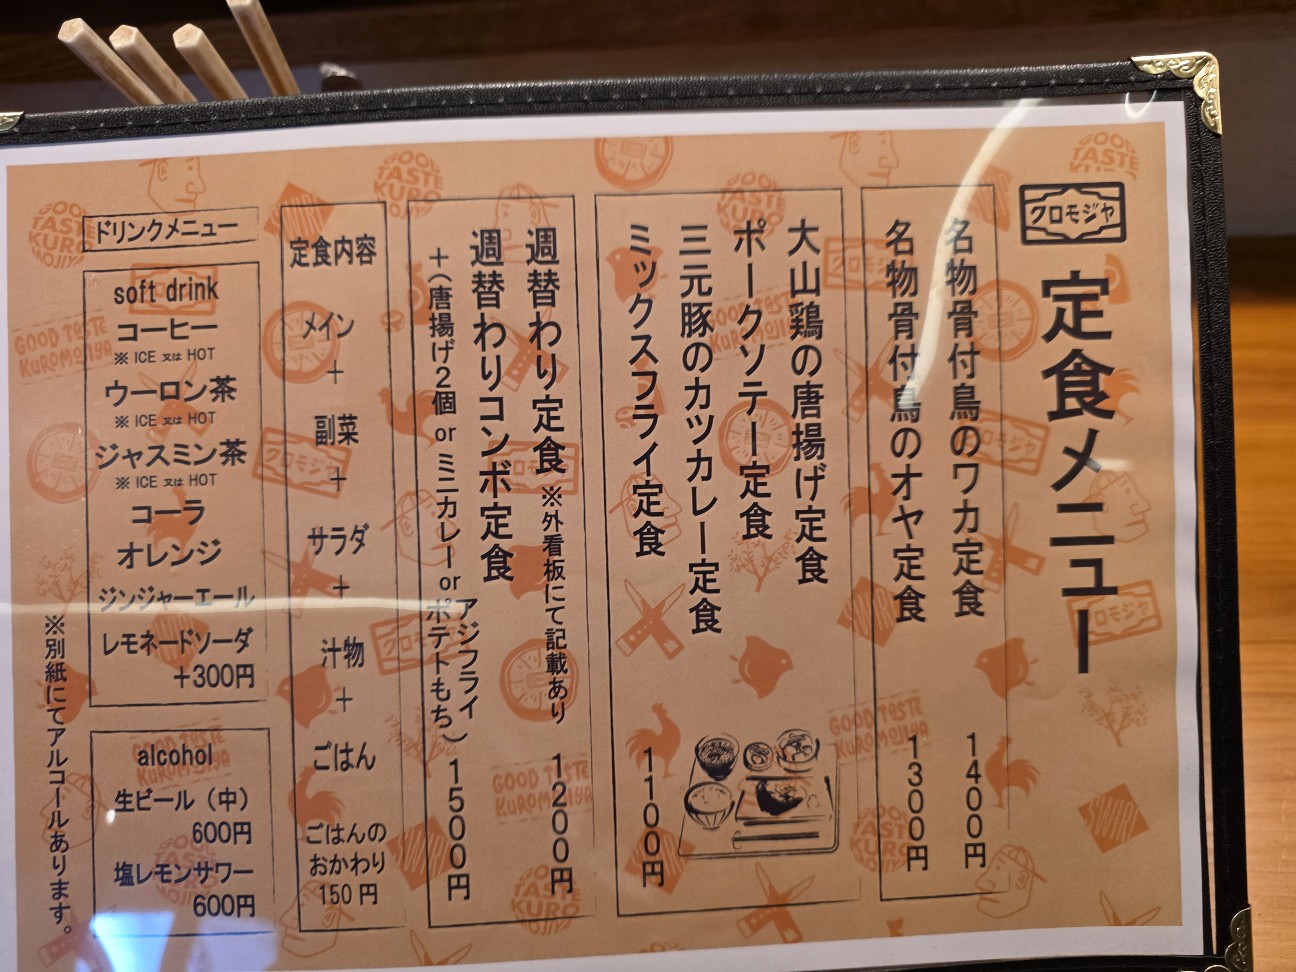 クロモジヤ
定食メニュー
名物骨付鳥のワカ定食 1400円
名物骨付鳥のオヤ定食 1300円
大山鶏の唐揚げ定食
ポークソテー定食
三元豚のカツカレー定食
ミックスフライ定食 1100円
週替わり定食 ※外看板にて記載あり 1200円
週替わりコンボ定食 1500円
+(唐揚げ2個 or ミニカレー or アジフライ
or ポテトもち)
定食内容
メイン
+
副菜
+
サラダ
+
汁物
+
ごはん
ごはんの
おかわり
150円
ドリンクメニュー
soft drink
コーヒー
※ ICE 又は HOT
ウーロン茶
※ ICE 又は HOT
ジャスミン茶
※ ICE 又は HOT
コーラ
オレンジ
ジンジャーエール
レモネードソーダ
+300円
alcohol
生ビール(中)
600円
塩レモンサワー
600円
※別紙にてアルコールあります。
GOOD TASTE
KUROMOJIYA